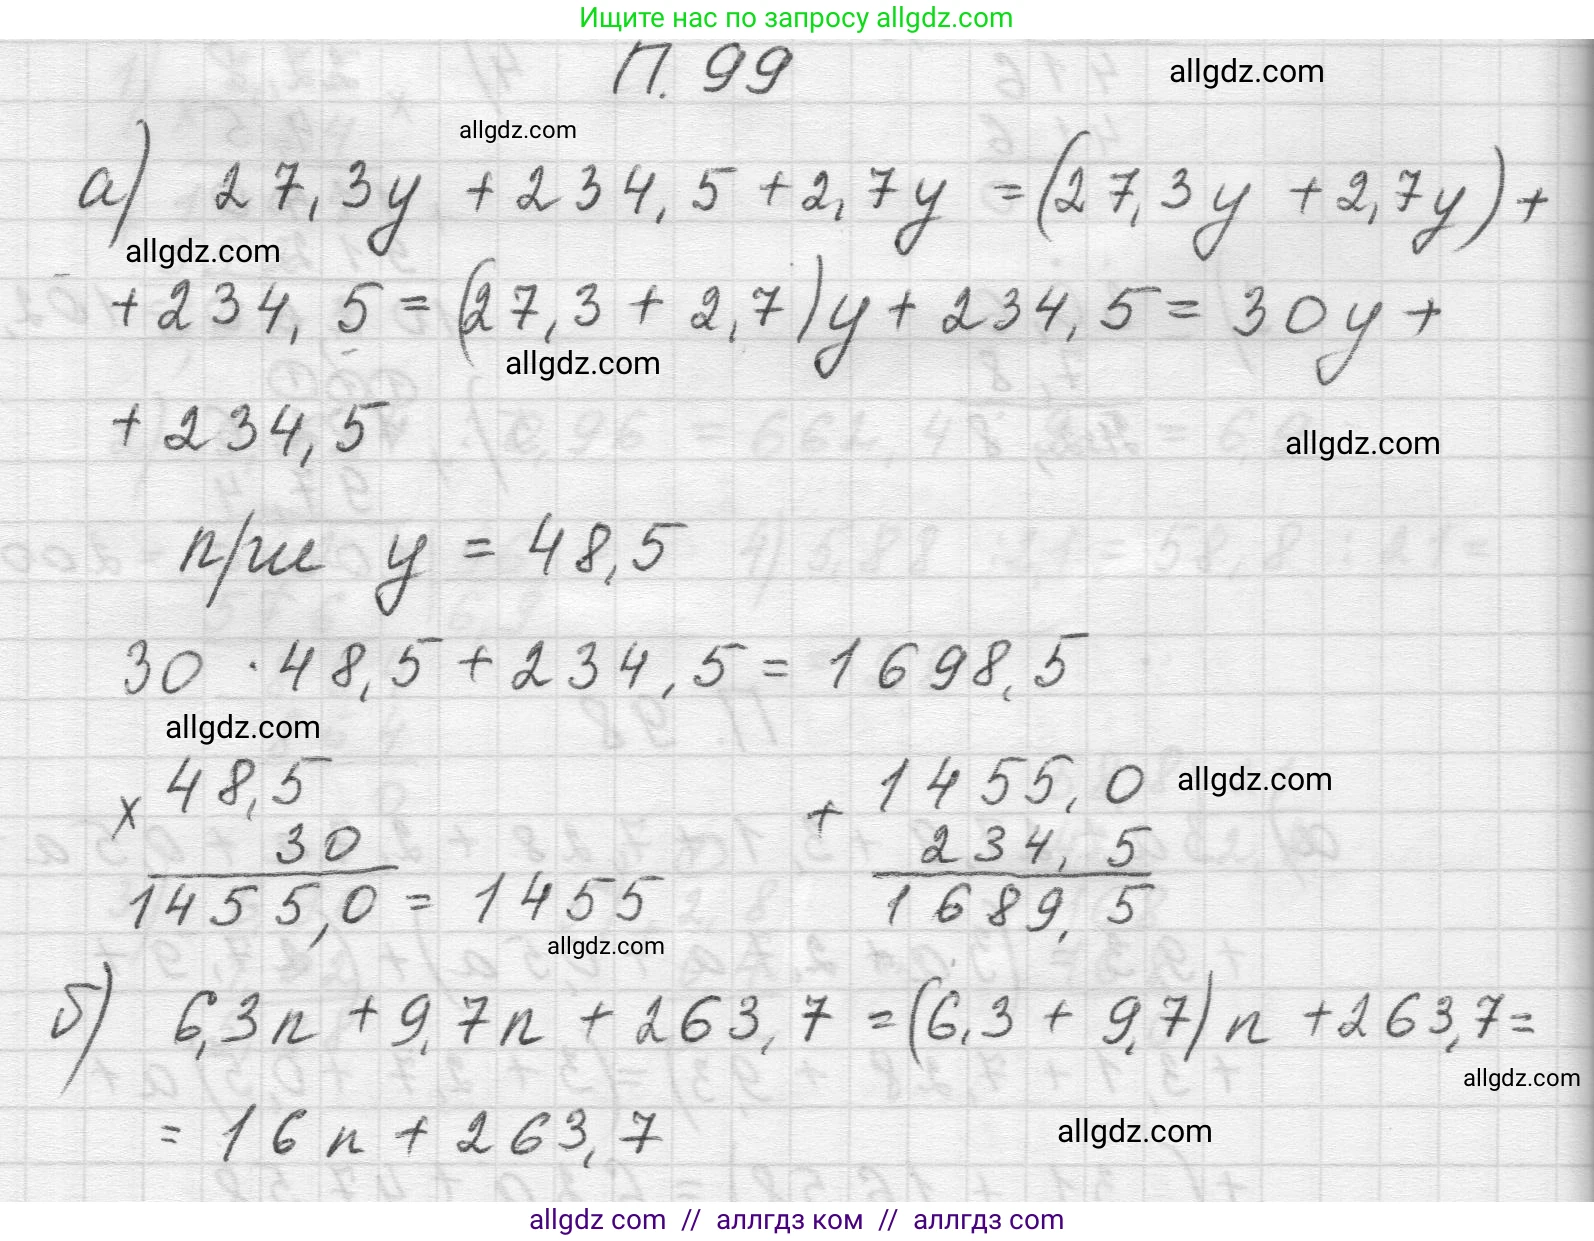 Ищите нас по запросу allgdz.com
П. 99
allgdz.com
allgdz.com
а) 27,3y + 234,5 + 2,7y = (27,3y + 2,7y) +
allgdz.com
+ 234,5 = (27,3 + 2,7)y + 234,5 = 30y +
allgdz.com
+ 234,5
allgdz.com
при y = 48,5
30 · 48,5 + 234,5 = 1698,5
allgdz.com
× 48,5
30
1455,0 = 1455
+ 1455,0
allgdz.com
234,5
1689,5
allgdz.com
б) 6,3n + 9,7n + 263,7 = (6,3 + 9,7)n + 263,7 =
allgdz.com
= 16n + 263,7
allgdz.com
allgdz com // аллгдз ком // аллгдз com